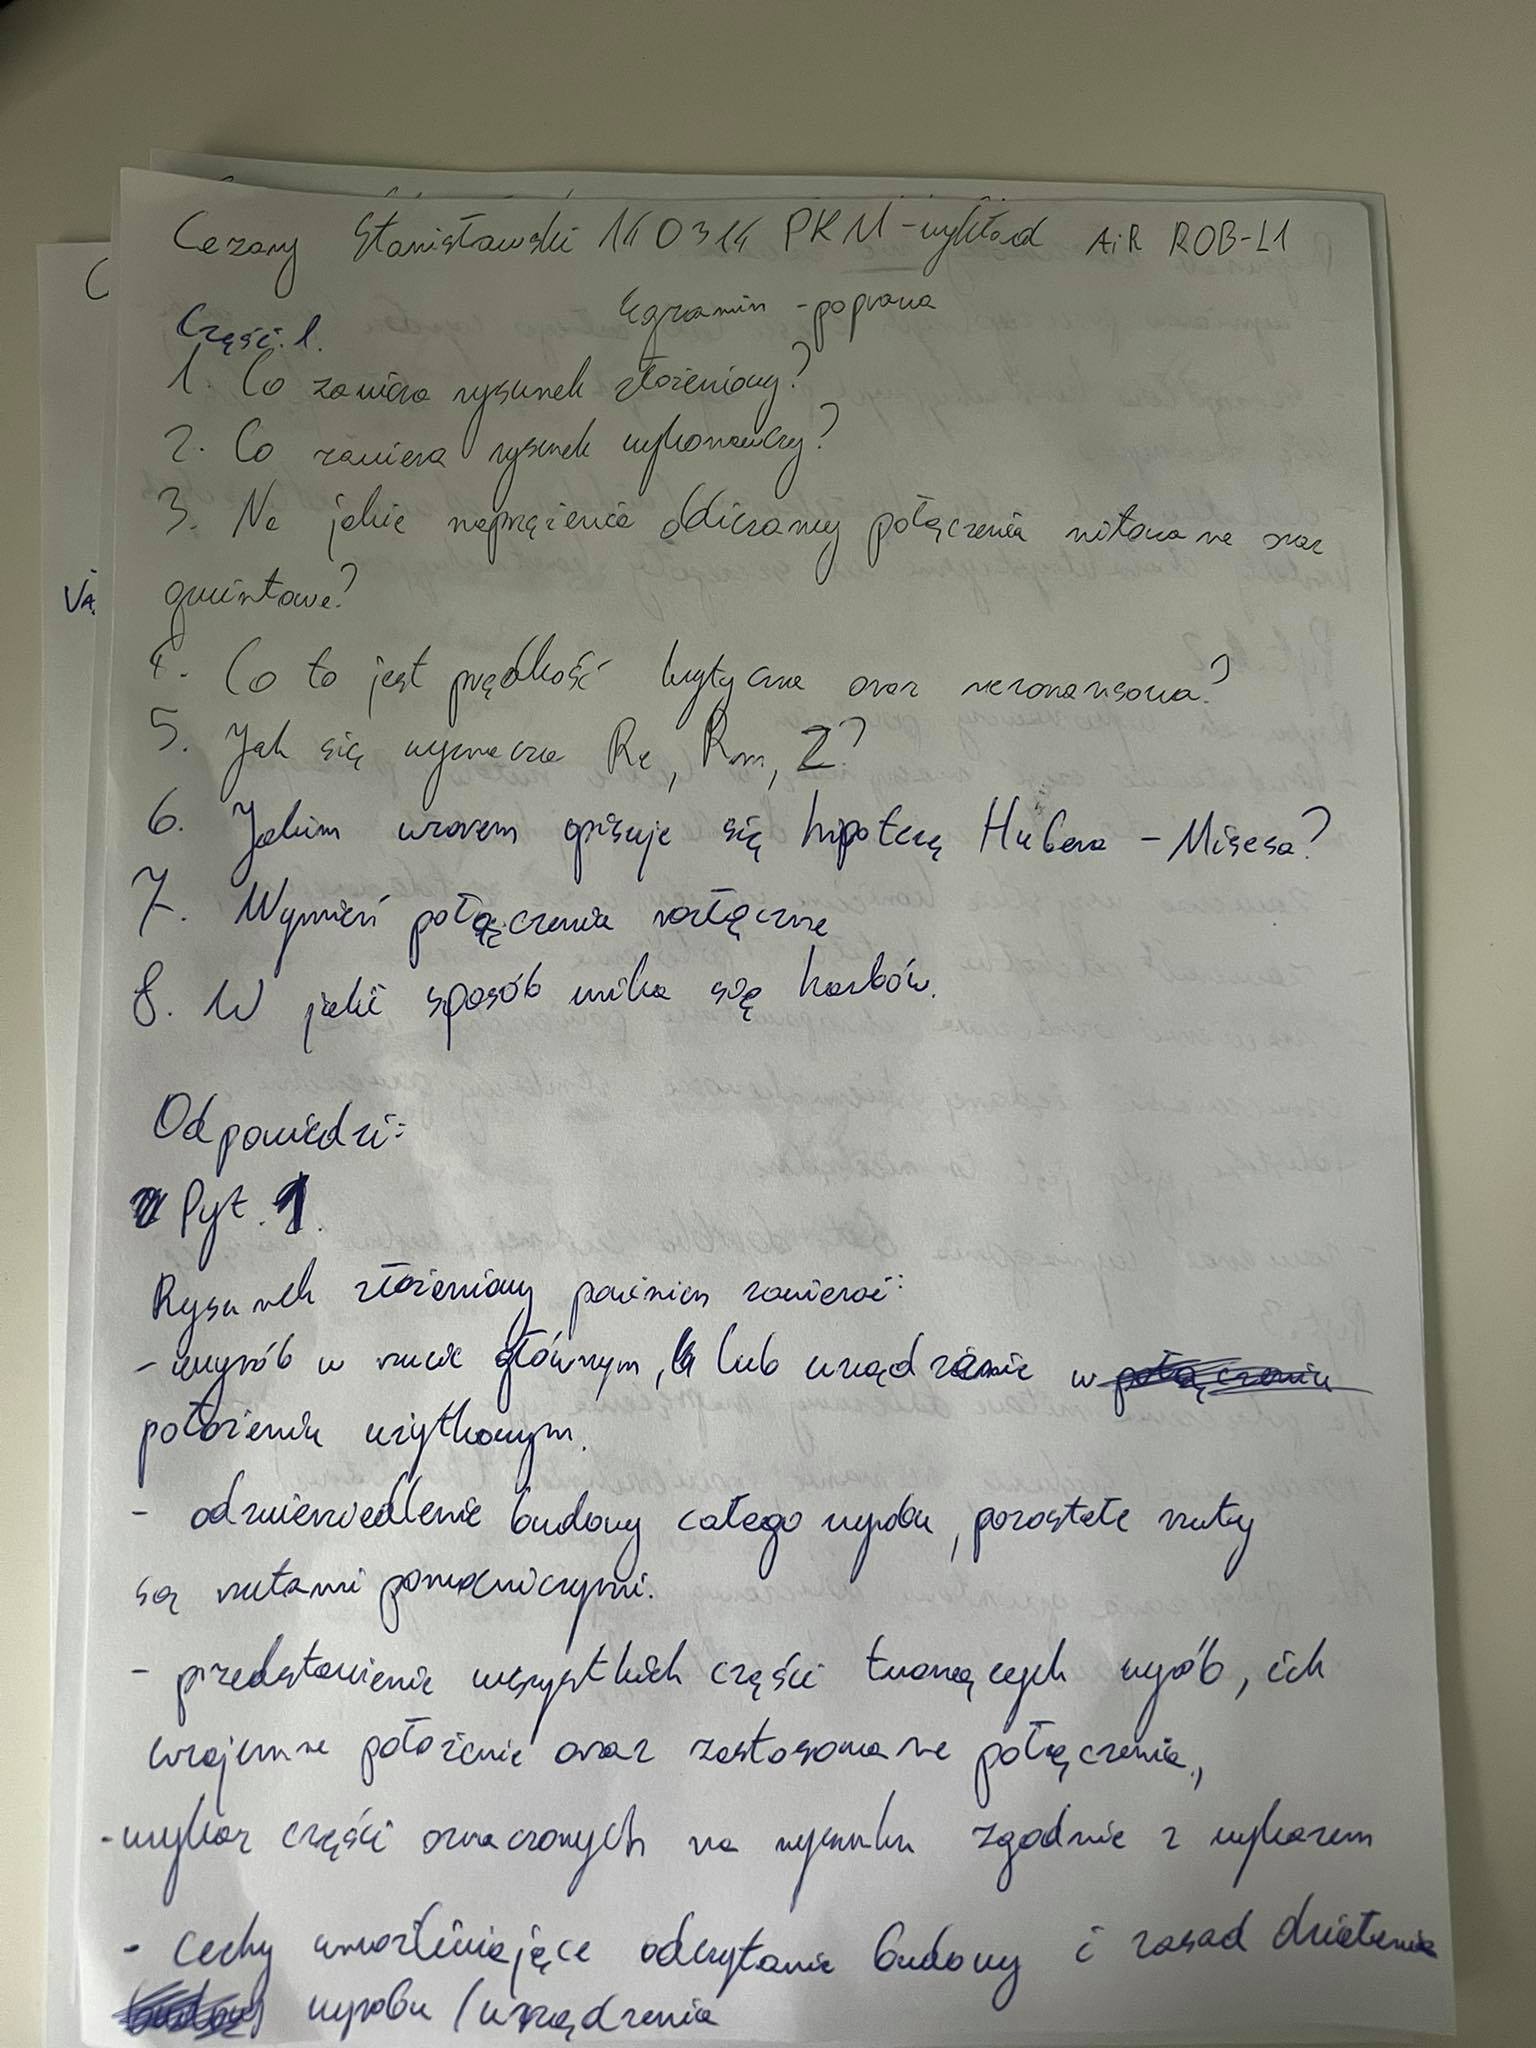 Cezary Stanisławski 140314 PKM-wykład AiR ROB-L1
Egzamin - poprawa
Część. 1.
1. Co zawiera rysunek złożeniowy?
2. Co zawiera rysunek wykonawczy?
3. Na jakie naprężenia obliczamy połączenia nitowane oraz
gwintowe?
4. Co to jest prędkość krytyczna oraz rezonansowa?
5. Jak się wyznacza Re, Rm, Z?
6. Jakim wzorem opisuje się hipotezę Hubera - Misesa?
7. Wymień połączenia rozłączne
8. W jaki sposób unika się karbów.
Odpowiedzi:
Pyt. 1.
Rysunek złożeniowy powinien zawierać:
- wyrób w rzucie głównym, lub urządzenie w
położeniu użytkowym.
- odzwierciedlenie budowy całego wyrobu, pozostałe rzuty
są rzutami pomocniczymi.
- przedstawienie wszystkich części tworzących wyrób, ich
wzajemne położenie oraz zastosowane połączenia,
- wykaz części oznaczonych na rysunku zgodnie z wykazem
- cechy umożliwiające odczytanie budowy i zasad działania
wyrobu / urządzenia